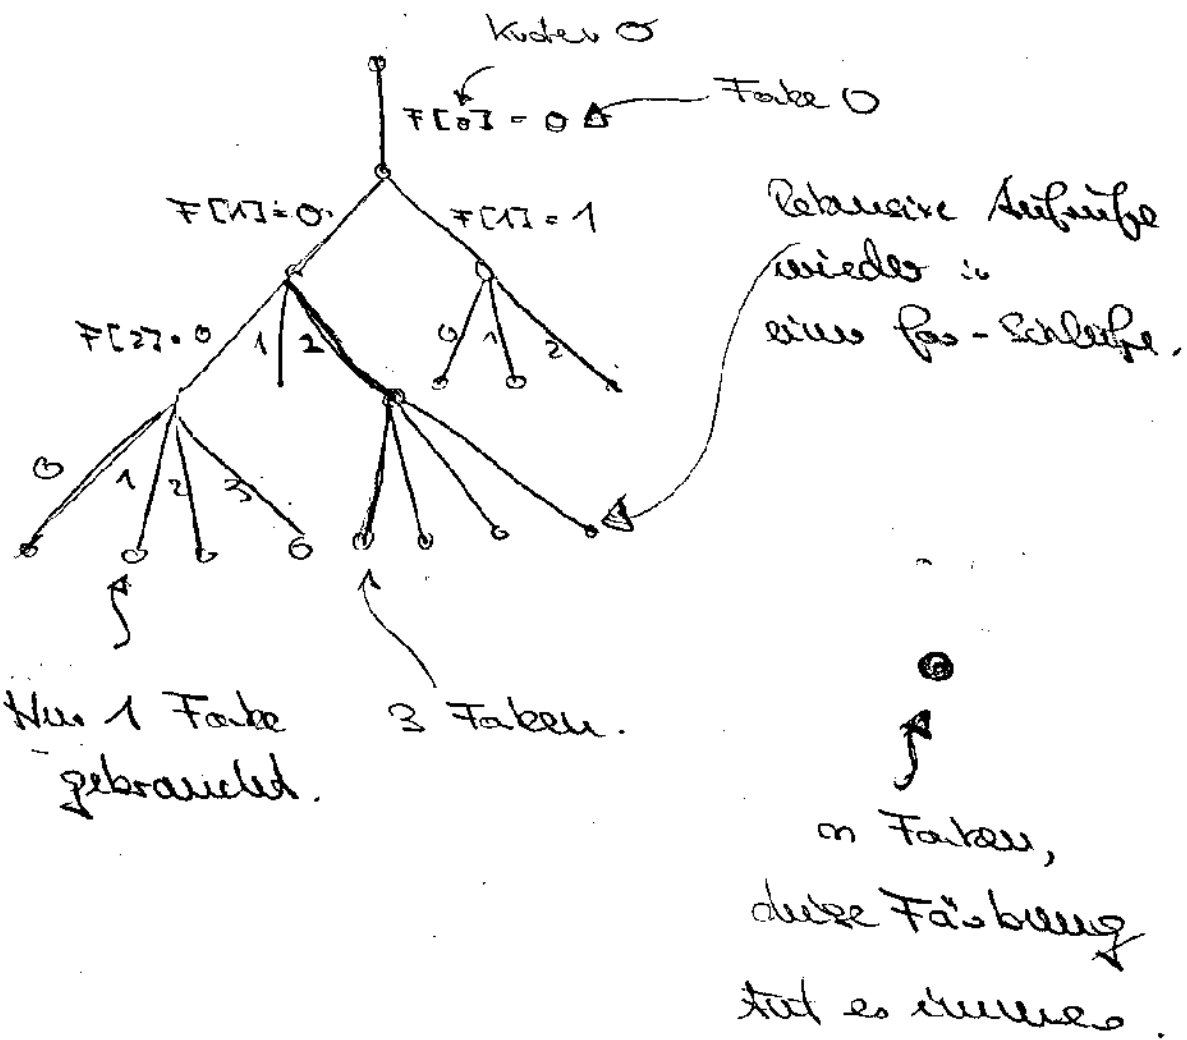 Knoten 0
F[0] = 0
Farbe 0
F[1] = 0
F[1] = 1
Rekursive Aufrufe
wieder in
einer for-Schleife.
F[2] = 0
1 2
0 1 2
0 1 2 3
Nur 1 Farbe
gebraucht.
3 Farben.
n Farben,
diese Färbung
tut es immer.